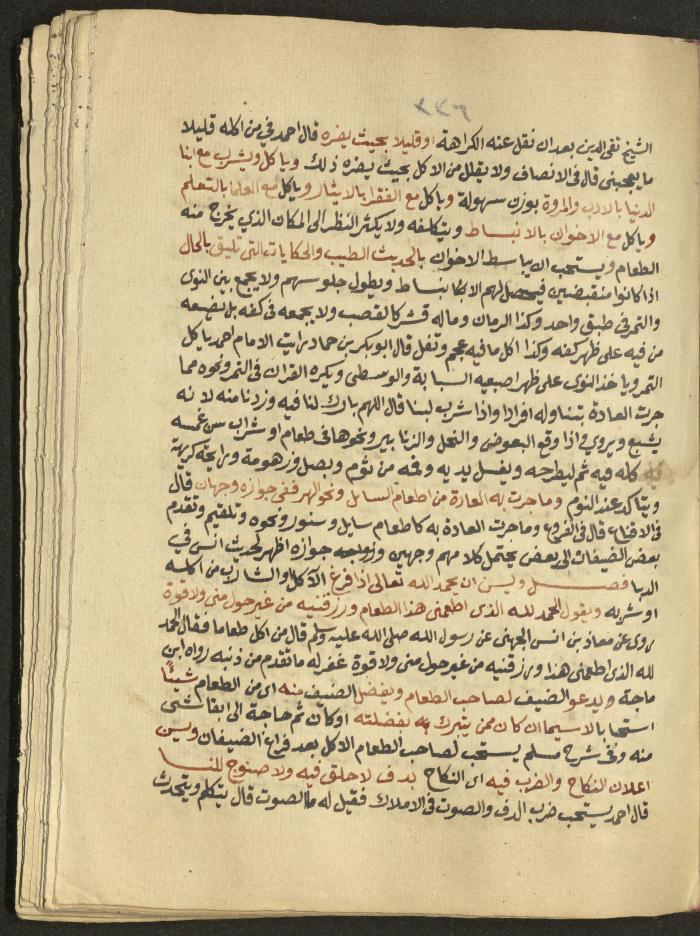 ٢٢٦
الشيخ تقى الدين بعد ان نقل عنه الكراهة او قليلا بحيث يضره قال احمد في من اكله قليلا
ما يعجبنى قال فى الانصاف ولا يقلل من الاكل بحيث يضره ذلك وياكل ويشرب مع ابنا
الدنيا بالادب والمروة بوزن سهولة وياكل مع الفقرا بالايثار وياكل مع العلما بالتعلم
وياكل مع الاخوان بالانبساط ويتكلفه ولا يكثر النظر الى المكان الذي يخرج منه
الطعام ويستحب ان يباسط الاخوان بالحديث الطيب والحكايات التى تليق بالحال
اذا كانوا منقبضين فيحصل لهم الانبساط ويطول جلوسهم ولا يجمع بين النوى
والتمر فى طبق واحد وكذا الرمان وماله قشر كالقصب ولا يجمعه فى كفه بل يضعه
من فيه على ظهر كفه وكذا كل ما فيه عجم وتفل قال ابو بكر بن حماد رايت الامام احمد ياكل
التمر وياخذ النوى على ظهر اصبعيه السبابة والوسطى ويكره القران فى التمر ونحوه مما
جرت العادة بتناوله افرادا واذا شرب لبنا قال اللهم بارك لنا فيه وزدنا منه لانه
يشبع ويروي واذا وقع البعوض والنحل والزنابير ونحوها فى طعام او شراب سن غمسه
كله فيه ثم ليطرحه ويغسل يديه وفمه من ثوم وبصل وزهومة ورايحة كريهة
ويتاكد عند النوم وما جرت به العادة من اطعام السايل ونحو الهر ففى جوازه وجهان قال
فى الاقناع قال فى الفروع وما جرت العادة به كاطعام سايل وسنور ونحوه وتلقيم وتقدم
بعض الضيفان الى بعض يحتمل كلامهم وجهين وجوازه اظهر لحديث انس في
الدبا فصل ويسن ان يحمد الله تعالى اذا فرغ الآكل والشارب من اكله
او شربه ويقول الحمد لله الذى اطعمنى هذا الطعام ورزقنيه من غير حول منى ولا قوة
روى عن معاذ بن انس الجهنى عن رسول الله صلى الله عليه وسلم قال من اكل طعاما فقال الحمد
لله الذى اطعمنى هذا ورزقنيه من غير حول منى ولا قوة غفر له ما تقدم من ذنبه رواه ابن
ماجة ويدعو الضيف لصاحب الطعام ويفضل الضيف منه اى من الطعام شيئا
استحبابا لاسيما ان كان ممن يتبرك بفضلته او كان ثم حاجة الى ابقا شئ
منه وفى شرح مسلم يستحب لصاحب الطعام الاكل بعد فراغ الضيفان ويسن
اعلان النكاح والضرب فيه اى النكاح بدف لا حلق فيه ولا صنوج للنسا
قال احمد يستحب ضرب الدف والصوت فى الاملاك فقيل له ما الصوت قال يتكلم ويتحدث